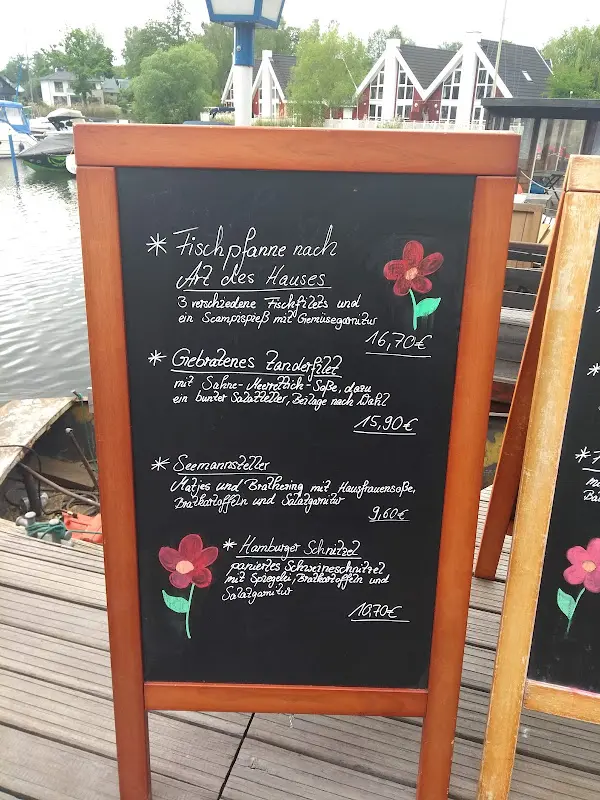 * Fischpfanne nach
Art des Hauses
3 verschiedene Fischfilets und
ein Scampispieß mit Gemüsegarnitur
16,70€
* Gebratenes Zanderfilet
mit Sahne-Meerrettich-Soße, dazu
ein bunter Salatteller, Beilage nach Wahl
15,90€
* Seemannsteller
Matjes und Brathering mit Hausfrauensoße,
Bratkartoffeln und Salatgarnitur
9,60€
* Hamburger Schnitzel
paniertes Schweineschnitzel
mit Spiegelei, Bratkartoffeln und
Salatgarnitur
10,70€